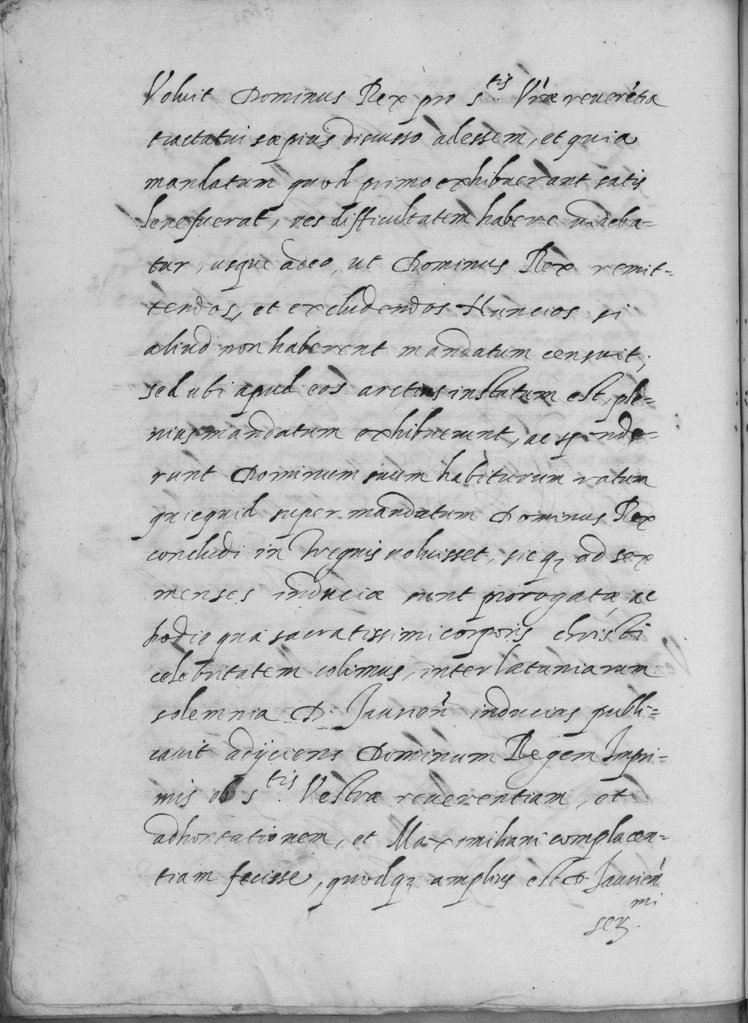 Voluit Dominus Rex pro S.tis Vr̃æ reuerẽtia
tractatui sæpius discusso adessem, et quia
mandatum quod primo exhibuerant satis
lene fuerat, res difficultatem habere videba-
tur, usque adeo, ut Dominus Rex remit-
tendos, et excludendos Nuncios si
aliud non haberent mandatum censuit;
sed ubi apud eos arctius instatum est, ple-
nius mandatum exhibuerunt, ac sponde-
runt Dominum suum habiturum ratum
quicquid super mandatum Dominus Rex
concludi in treguis uoluisset, sicq; ad sex
menses induciæ sunt prorogatæ ac
hodie qua sacratissimi corporis christi
celebritatem colimus, inter lætaniarum
solemnia D. Jaurien̄ inducias publi-
cauit adijciens Dominum Regem Impri-
mis ob S.tis Vestræ reuerentiam, et
adhortationem, et Maximiliani complacen-
tiam fecisse, quodq; amplius est D. Jaurien̄